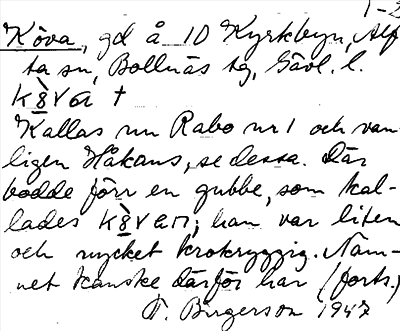 1-2
Köva, gd å 10 Kyrkbyn, Alf
ta sn, Bollnäs tg, Gävl. l.
Kallas nu Rabo nr 1 och van
ligen Håkans, se dessa. Där
bodde förr en gubbe, som kal-
lades han var liten
och mycket krokryggig. Nam-
net kanske därför har (forts.)
T. Birgerson 1947